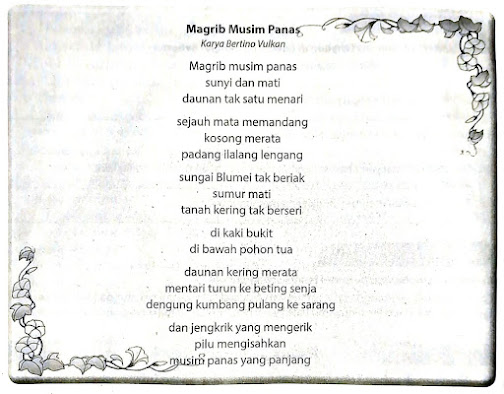 Magrib Musim Panas
Karya Bertino Vulkan
Magrib musim panas
sunyi dan mati
daunan tak satu menari
sejauh mata memandang
kosong merata
padang ilalang lengang
sungai Blumei tak beriak
sumur mati
tanah kering tak berseri
di kaki bukit
di bawah pohon tua
daunan kering merata
mentari turun ke beting senja
dengung kumbang pulang ke sarang
dan jengkrik yang mengerik
pilu mengisahkan
musim panas yang panjang